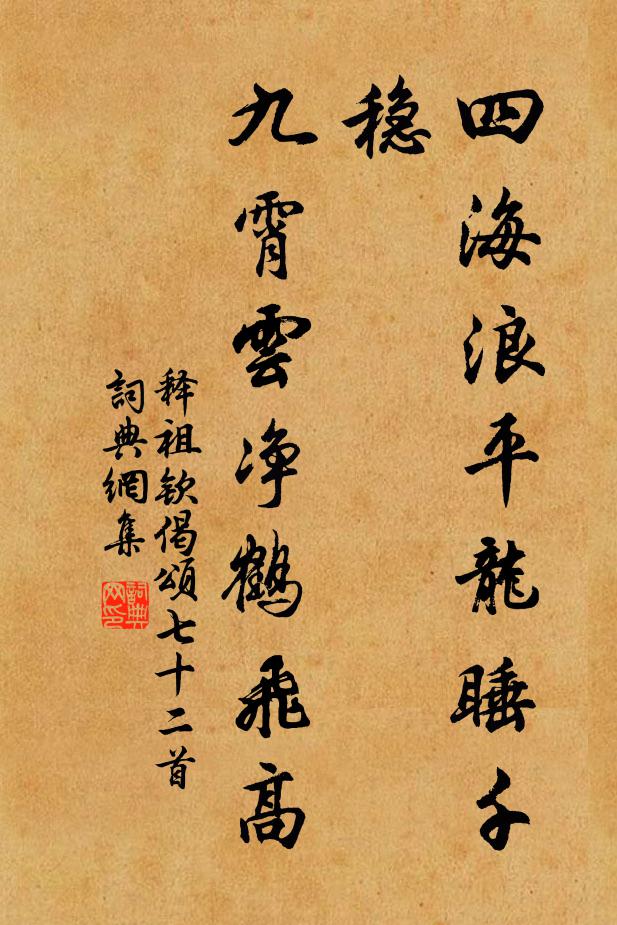 四海浪平龍睡千
穩
九霄雲净鶴飛高
释祖钦偈頌七十二首
詞典網集
詞典
网印